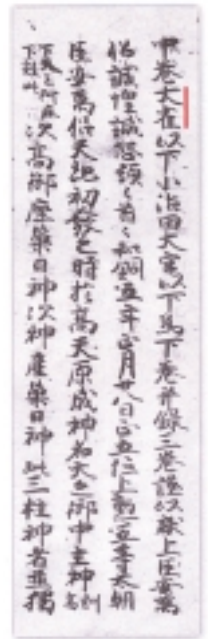 中巻大雀以下小治田大宮以下為下巻并録三巻謹以献上臣安萬
侶誠惶誠恐頓々首々和銅五年正月廿八日正五位上勲五等太朝
臣安萬侶天地初發之時於高天原成神名天之御中主神訓高
下天云阿麻下效此次高御産巣日神次神産巣日神此三柱神者並獨